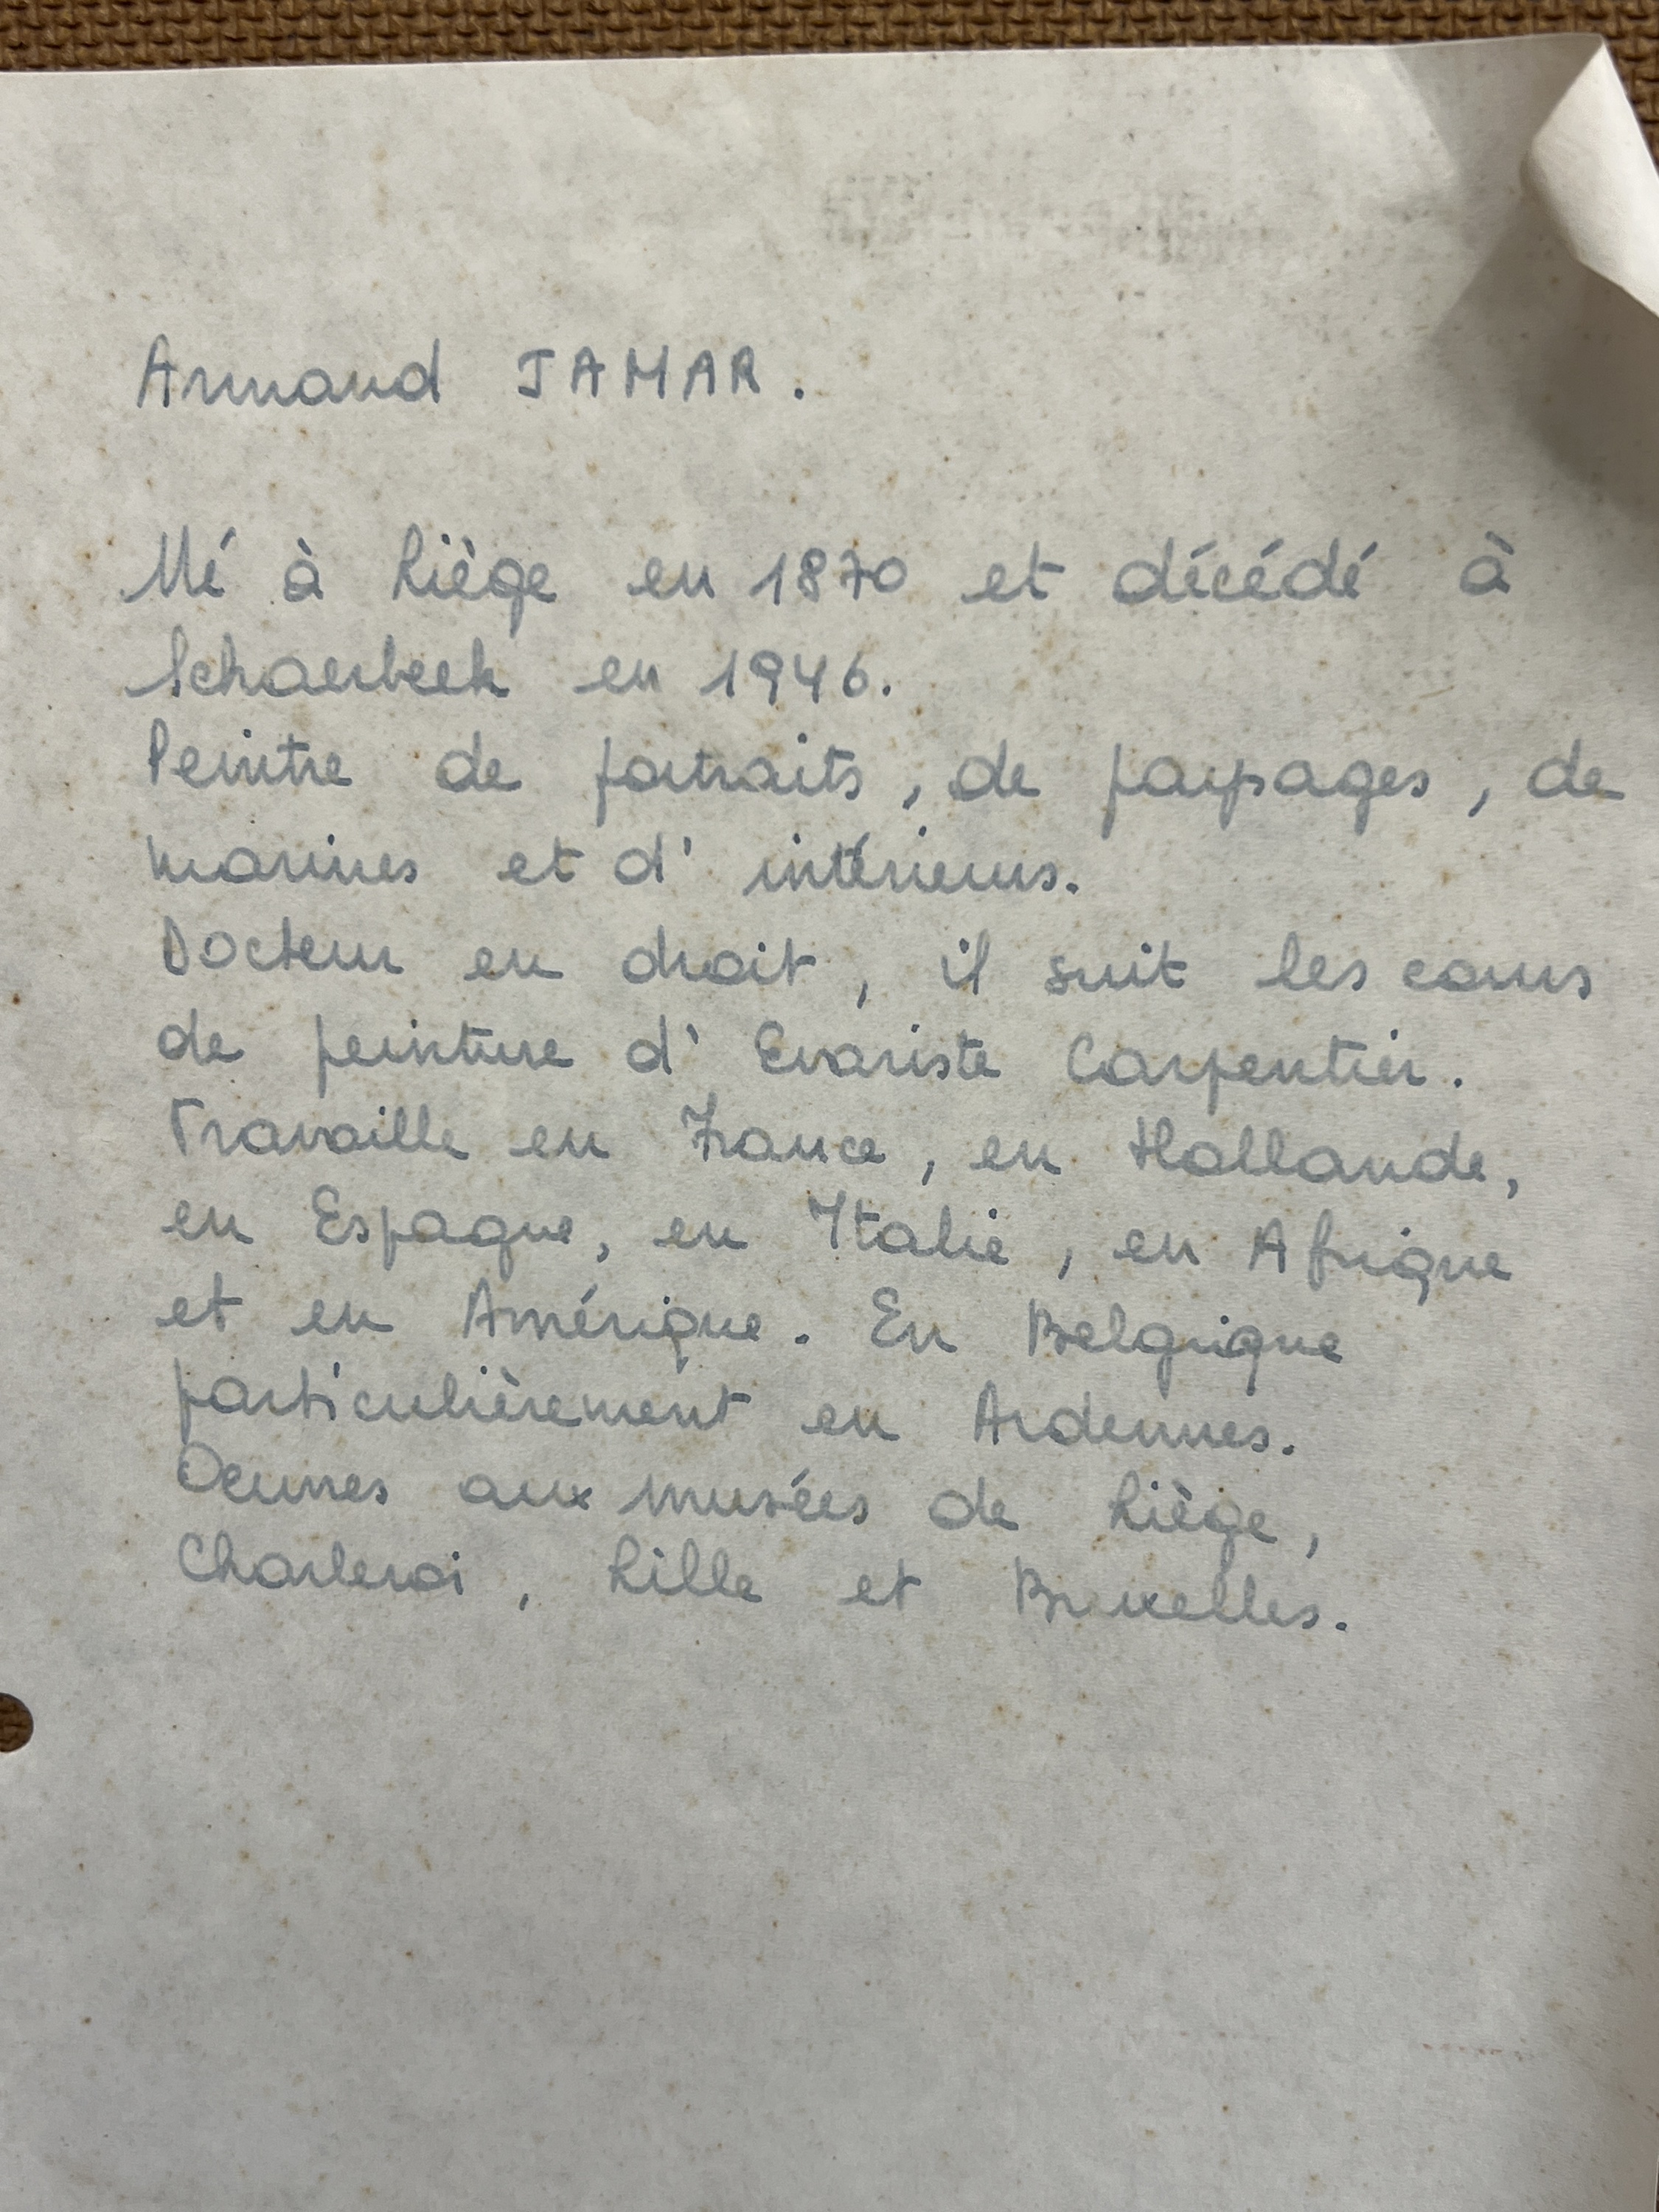 Armand JAMAR.
Né à Liège en 1870 et décédé à
Schaerbeek en 1946.
Peintre de portraits, de paysages, de
marines et d' intérieurs.
Docteur en droit, il suit les cours
de peinture d' Evariste Carpentier.
Travaille en France, en Hollande,
en Espagne, en Italie, en Afrique
et en Amérique. En Belgique
particulièrement en Ardennes.
Oeuvres aux musées de Liège,
Charleroi, Lille et Bruxelles.